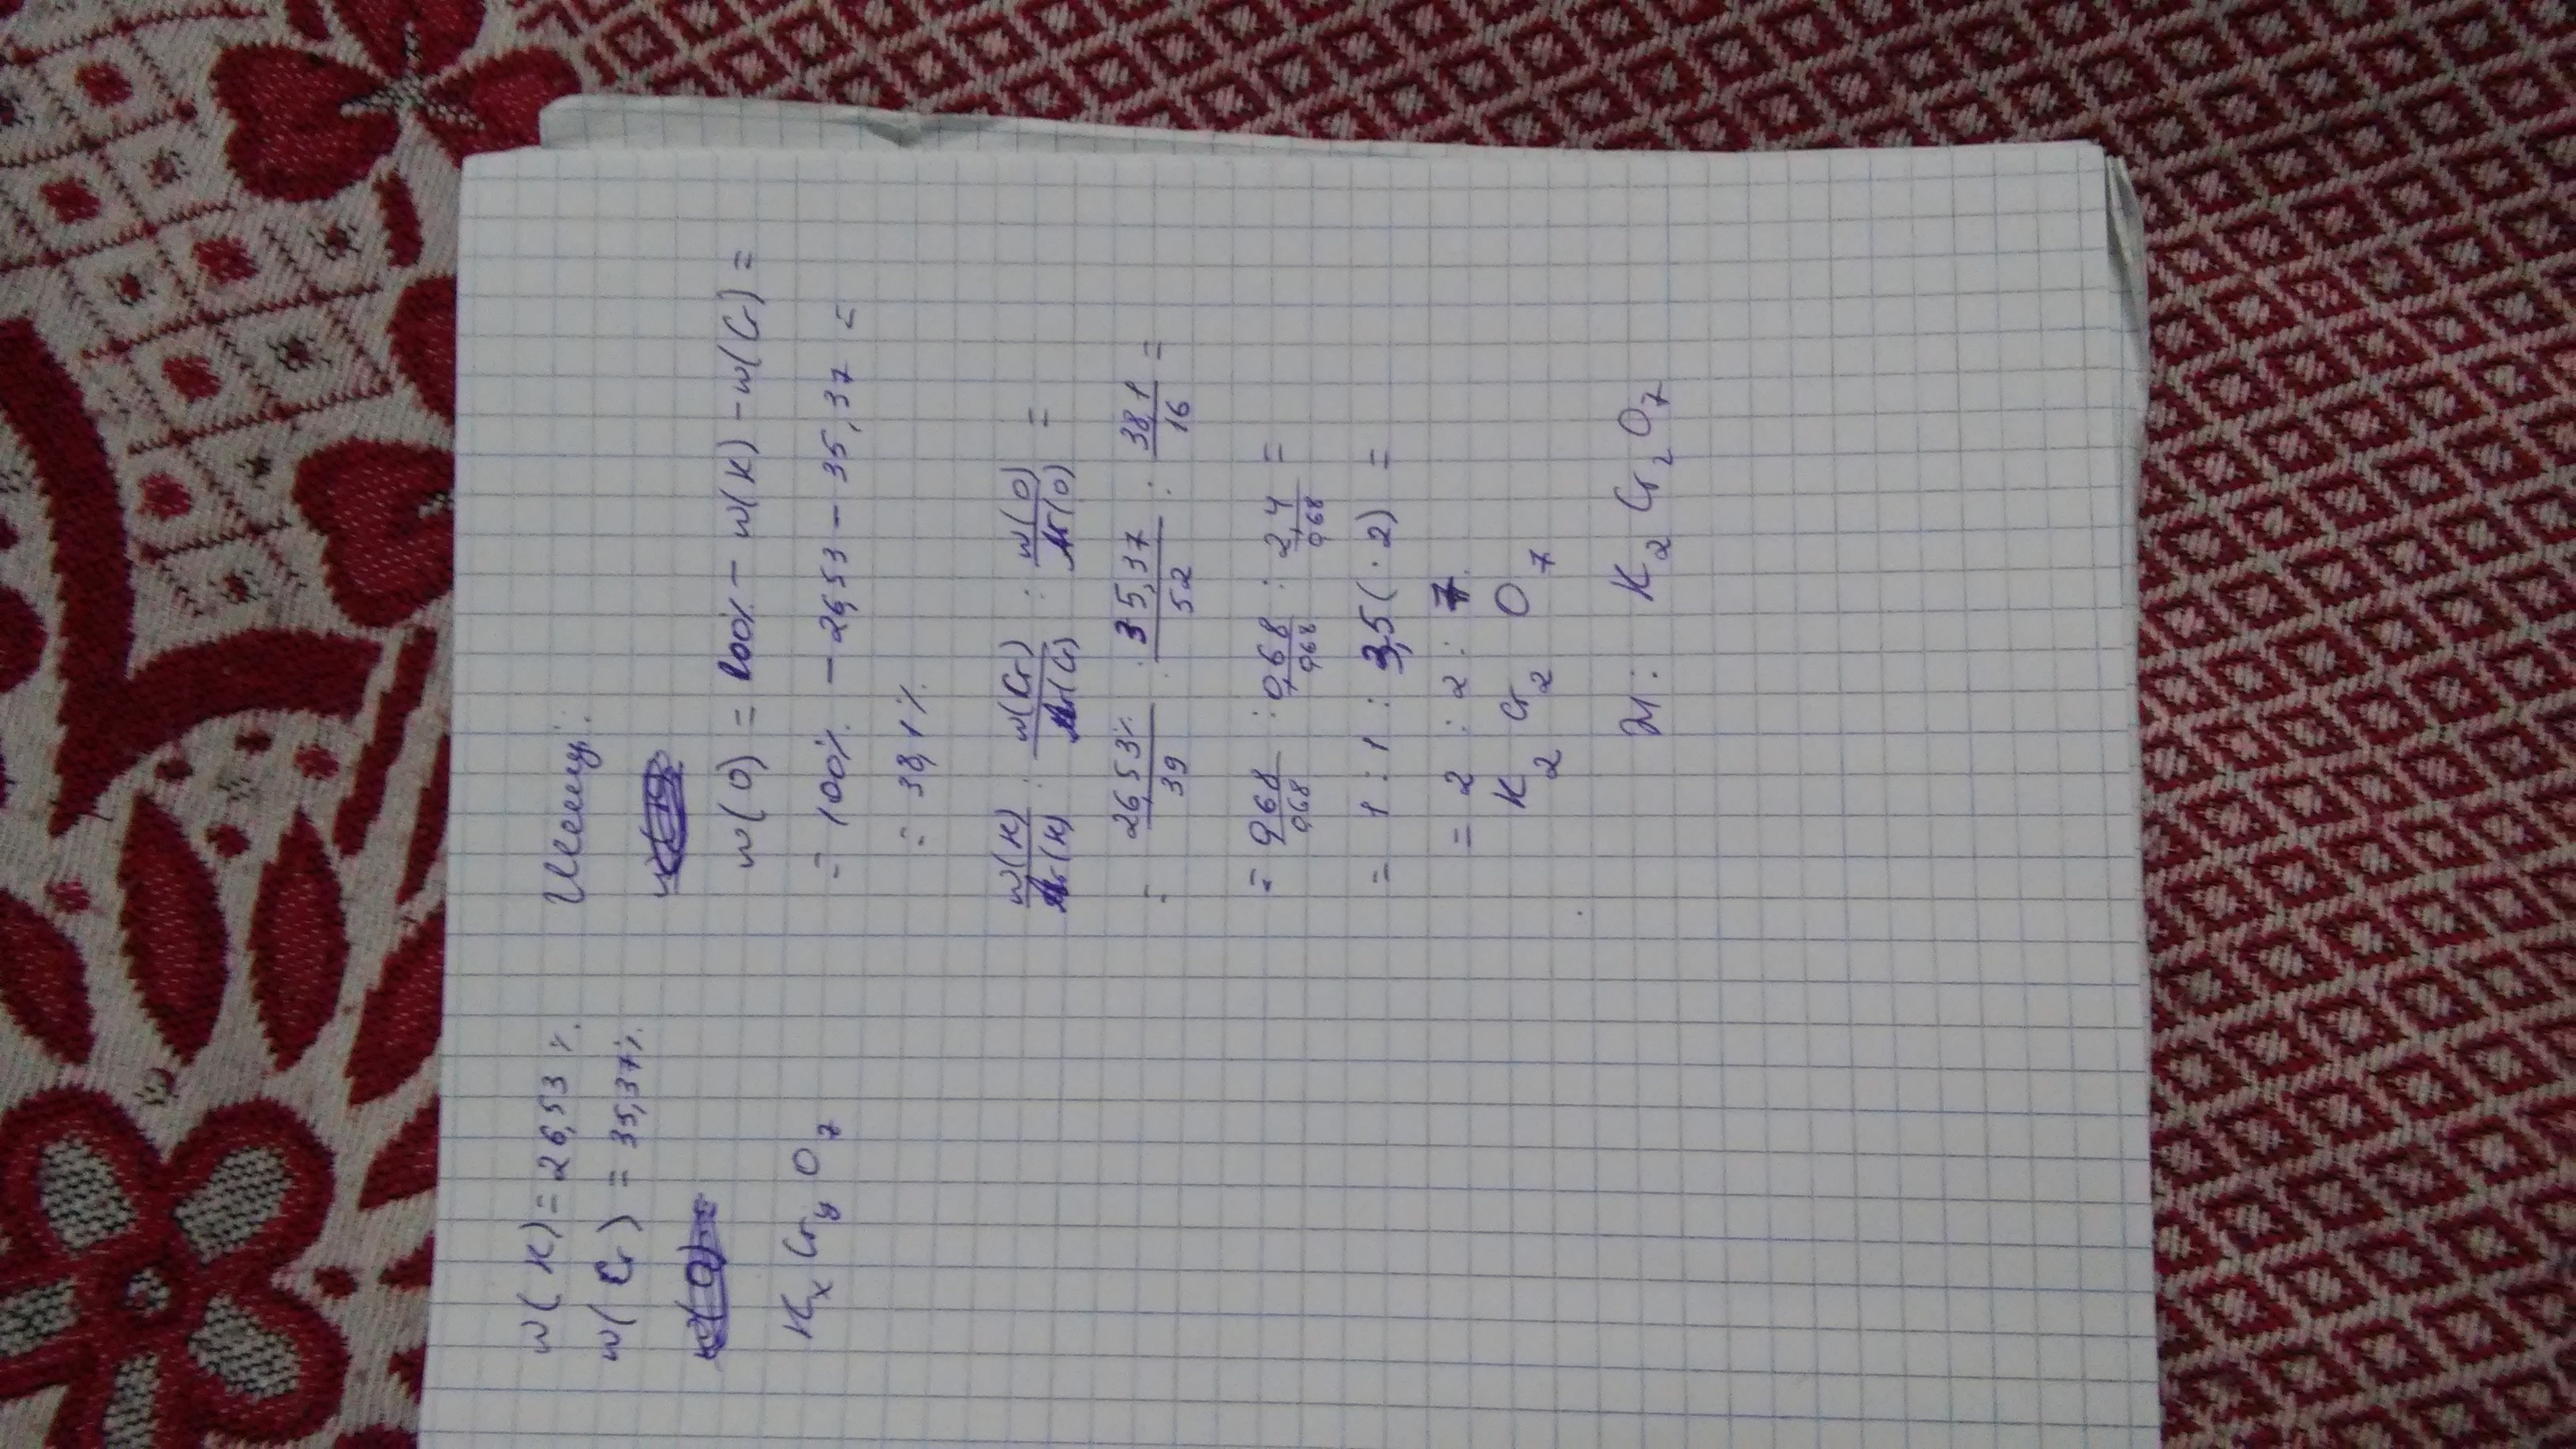 w(K)=26,53%
w(Cr)=35,37%
KxCryO7
Шешуі:
w(O)=100%-w(K)-w(Cr)=
=100%-26,53-35,37=
=38,1%
w(K)/Ar(K) : w(Cr)/Ar(Cr) : w(O)/Ar(O) =
= 26,53%/39 : 35,37/52 : 38,1/16 =
= 0,68/0,68 : 0,68/0,68 : 2,4/0,68 =
= 1 : 1 : 3,5 (·2) =
= 2 : 2 : 7
K2 Cr2 O7
K2Cr2O7